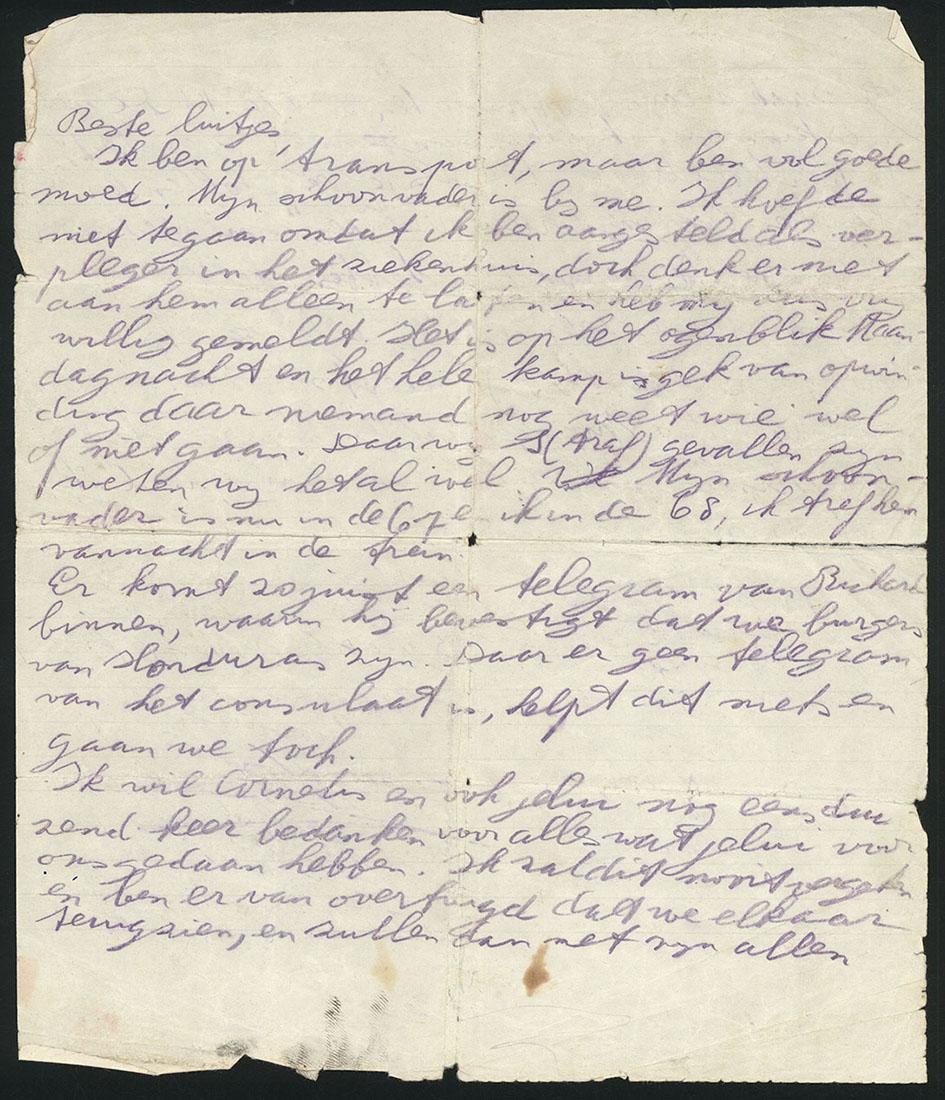 Beste luitjes,
Ik ben op transport, maar ben vol goede
moed. Mijn schoonvader is by me. Ik hoefde
niet te gaan omdat ik ben aangesteld als ver-
pleger in het ziekenhuis, doch denk er niet
aan hem alleen te laten en heb my dus vry
willig gemeldt. Het is op het ogenblik Maan
dagnacht en het hele kamp is gek van opwin
ding daar niemand nog weet wie wel
of niet gaan. Daar wy S(traf) gevallen zyn
weten wy het al wel. Myn schoon-
vader is nu in de 67 en ik in de 68, ik tref hem
vannacht in de trein.
Er komt zojuist een telegram van Richard
binnen, waarin hij bevestigt dat we burgers
van Honduras zyn. Daar er geen telegram
van het consulaat is, helpt dit niets en
gaan we toch.
Ik wil Cornelis en ook jelui nog eens dui
zend keer bedanken voor alles wat jelui voor
ons gedaan hebben. Ik zal dit nooit vergeten
en ben er van overtuigd dat we elkaar
terugzien, en zullen dan met zyn allen